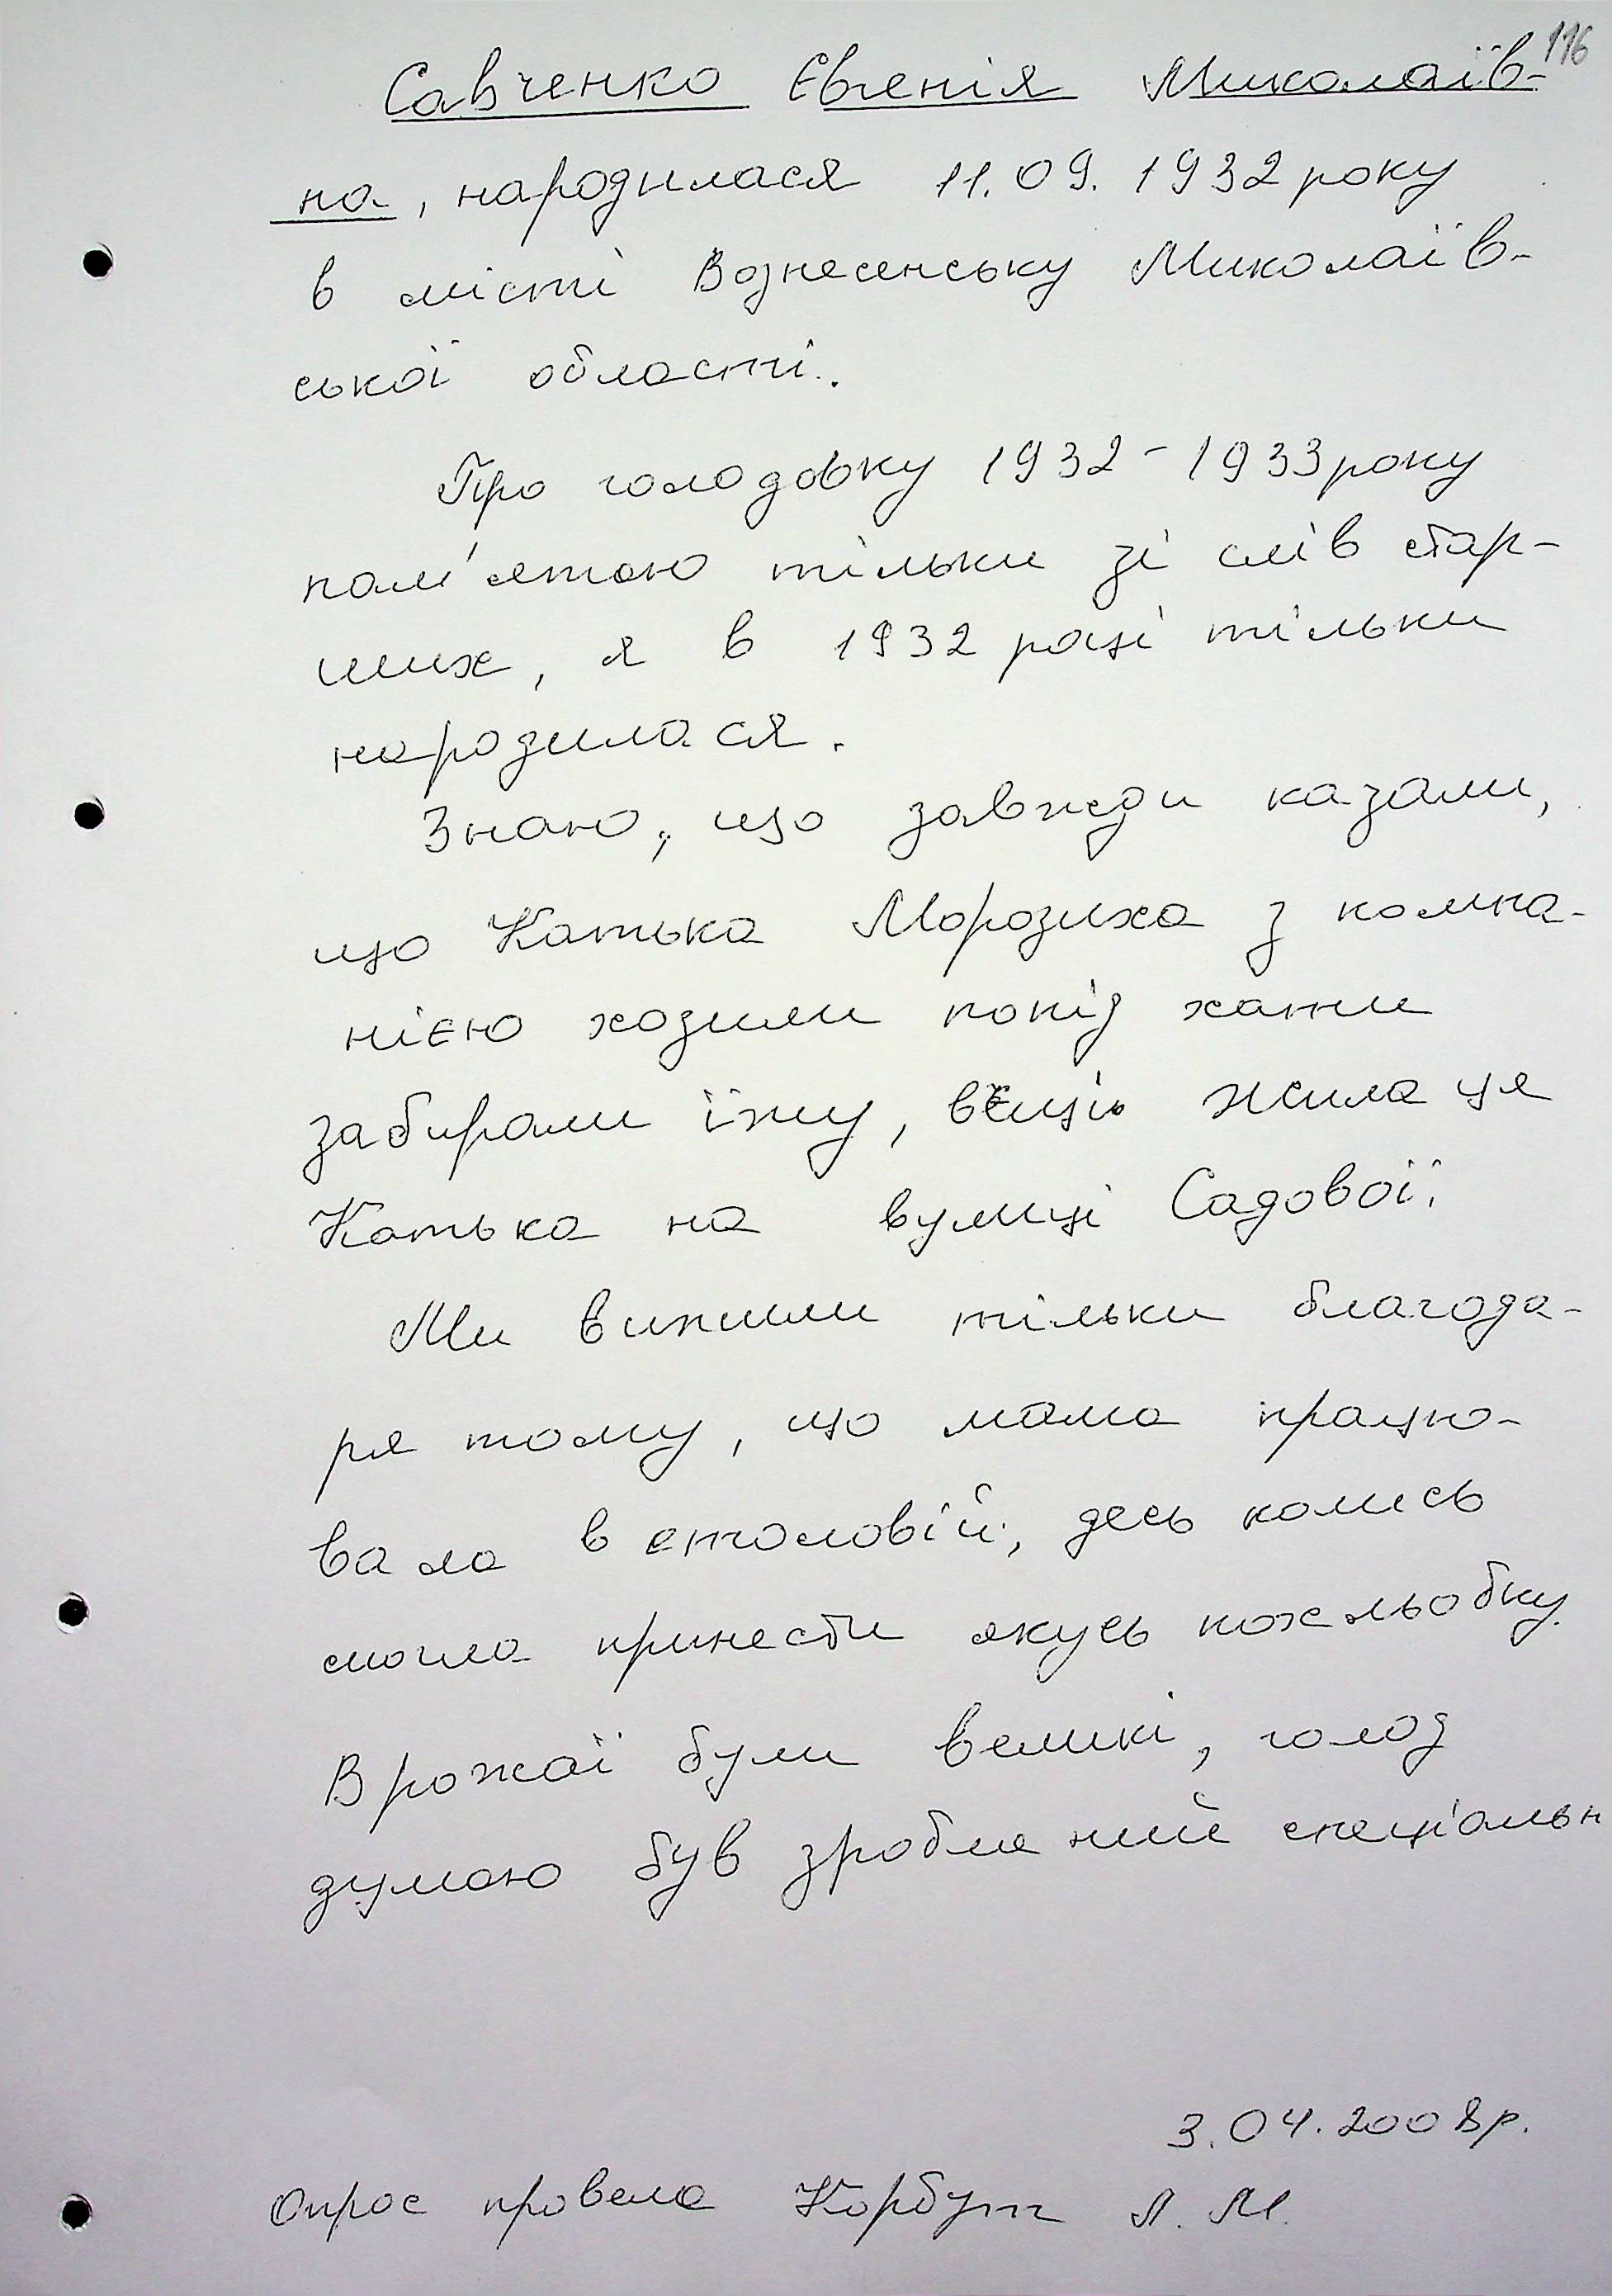 116
Савченко Євгенія Миколаїв-
на, народилася 11.09.1932 року
в місті Вознесенську Миколаїв-
ської області.
Про голодовку 1932-1933 року
пам'ятаю тільки зі слів стар-
ших, я в 1932 році тільки
народилася.
Знаю, що завжди казали,
що Катька Морозиха з компа-
нією ходили попід хати
забирали їжу, вещі. Жила ця
Катька на вулиці Садової.
Ми вижили тільки благода-
ря тому, що мама працю-
вала в столовій, десь колись
могла принести якусь похльобку.
Врожаї були великі, голод
думаю був зроблений спеціальн
3.04.2008р.
Опрос провела Корбут Л. М.